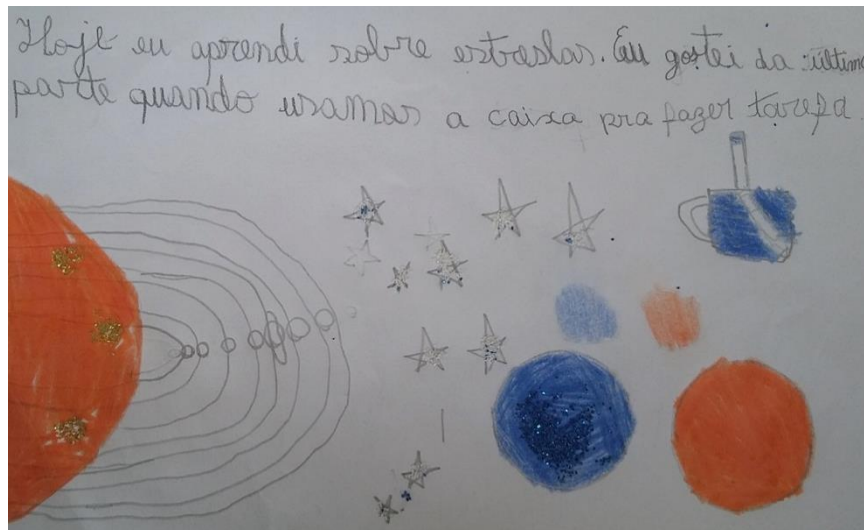 Hoje eu aprendi sobre estreslas. Eu gostei da última
parte quando usamos a caixa pra fazer tarefa.